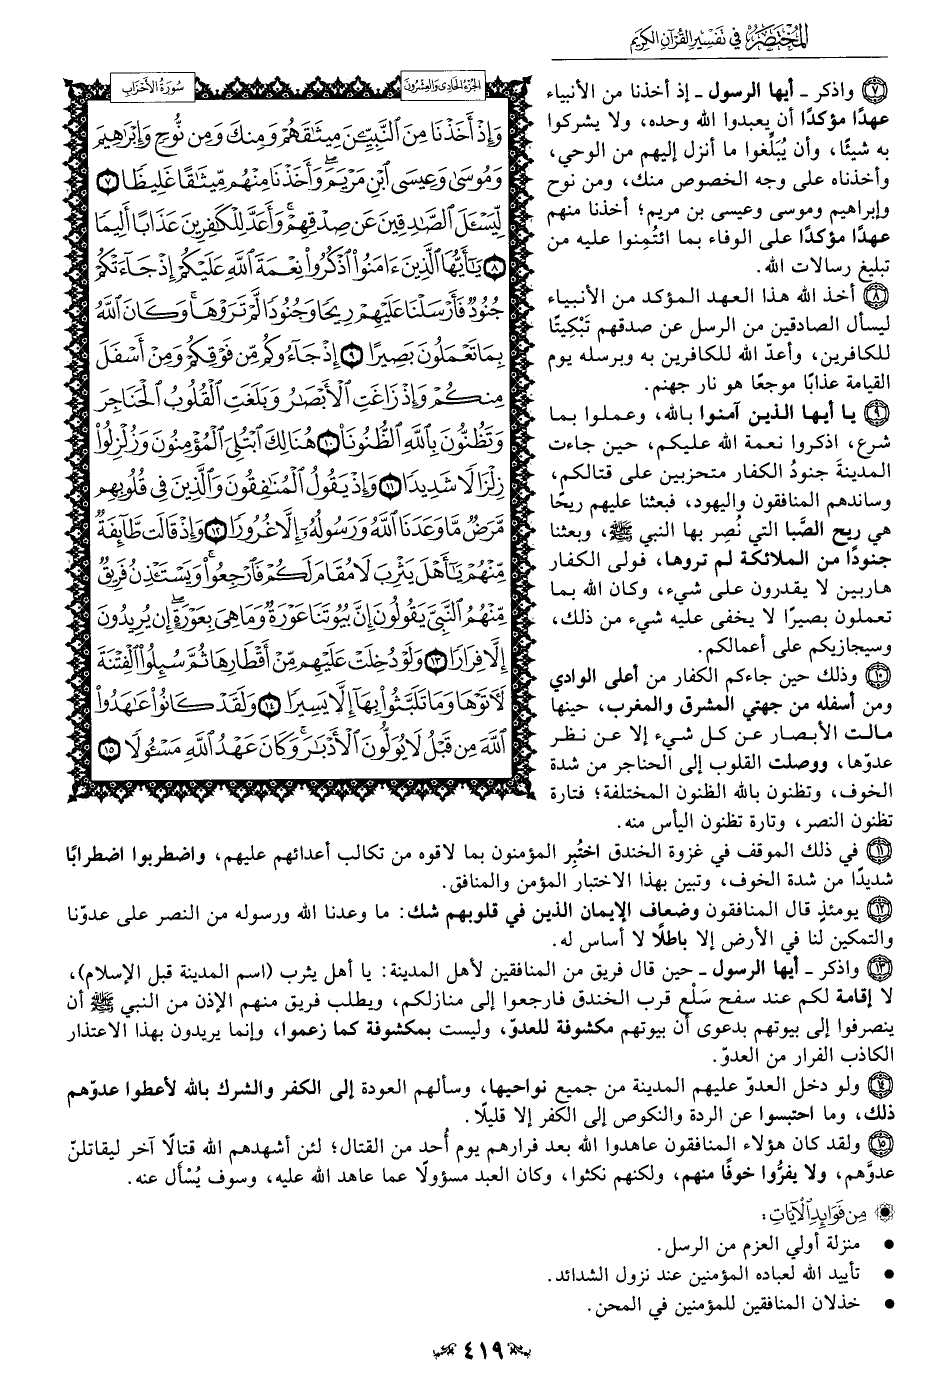 المختصر في تفسير القرآن الكريم
سورة الأحزاب
الجزء الحادي والعشرون
وَإِذْ أَخَذْنَا مِنَ ٱلنَّبِيِّـۧنَ مِيثَٰقَهُمْ وَمِنكَ وَمِن نُّوحٍ وَإِبْرَٰهِيمَ
وَمُوسَىٰ وَعِيسَى ٱبْنِ مَرْيَمَۖ وَأَخَذْنَا مِنْهُم مِّيثَٰقًا غَلِيظًا ٧
لِّيَسْـَٔلَ ٱلصَّٰدِقِينَ عَن صِدْقِهِمْۚ وَأَعَدَّ لِلْكَٰفِرِينَ عَذَابًا أَلِيمًا
٨ يَٰٓأَيُّهَا ٱلَّذِينَ ءَامَنُوا۟ ٱذْكُرُوا۟ نِعْمَةَ ٱللَّهِ عَلَيْكُمْ إِذْ جَآءَتْكُمْ
جُنُودٌ فَأَرْسَلْنَا عَلَيْهِمْ رِيحًا وَجُنُودًا لَّمْ تَرَوْهَاۚ وَكَانَ ٱللَّهُ
بِمَا تَعْمَلُونَ بَصِيرًا ٩ إِذْ جَآءُوكُم مِّن فَوْقِكُمْ وَمِنْ أَسْفَلَ
مِنكُمْ وَإِذْ زَاغَتِ ٱلْأَبْصَٰرُ وَبَلَغَتِ ٱلْقُلُوبُ ٱلْحَنَاجِرَ
وَتَظُنُّونَ بِٱللَّهِ ٱلظُّنُونَا۠ ١٠ هُنَالِكَ ٱبْتُلِيَ ٱلْمُؤْمِنُونَ وَزُلْزِلُوا۟
زِلْزَالًا شَدِيدًا ١١ وَإِذْ يَقُولُ ٱلْمُنَٰفِقُونَ وَٱلَّذِينَ فِي قُلُوبِهِم
مَّرَضٌ مَّا وَعَدَنَا ٱللَّهُ وَرَسُولُهُۥٓ إِلَّا غُرُورًا ١٢ وَإِذْ قَالَت طَّآئِفَةٌ
مِّنْهُمْ يَٰٓأَهْلَ يَثْرِبَ لَا مُقَامَ لَكُمْ فَٱرْجِعُوا۟ۚ وَيَسْتَـْٔذِنُ فَرِيقٌ
مِّنْهُمُ ٱلنَّبِيَّ يَقُولُونَ إِنَّ بُيُوتَنَا عَوْرَةٌ وَمَا هِيَ بِعَوْرَةٍۖ إِن يُرِيدُونَ
إِلَّا فِرَارًا ١٣ وَلَوْ دُخِلَتْ عَلَيْهِم مِّنْ أَقْطَارِهَا ثُمَّ سُئِلُوا۟ ٱلْفِتْنَةَ
لَـَٔاتَوْهَا وَمَا تَلَبَّثُوا۟ بِهَآ إِلَّا يَسِيرًا ١٤ وَلَقَدْ كَانُوا۟ عَٰهَدُوا۟
ٱللَّهَ مِن قَبْلُ لَا يُوَلُّونَ ٱلْأَدْبَٰرَۚ وَكَانَ عَهْدُ ٱللَّهِ مَسْـُٔولًا ١٥
٧ واذكر ـ أيها الرسول ـ إذ أخذنا من الأنبياء
عهدًا مؤكدًا أن يعبدوا الله وحده، ولا يشركوا
به شيئًا، وأن يُبَلِّغوا ما أنزل إليهم من الوحي،
وأخذناه على وجه الخصوص منك، ومن نوح
وإبراهيم وموسى وعيسى بن مريم؛ أخذنا منهم
عهدًا مؤكدًا على الوفاء بما ائتُمِنوا عليه من
تبليغ رسالات الله.
٨ أخذ الله هذا العهد المؤكد من الأنبياء
ليسأل الصادقين من الرسل عن صدقهم تَبْكِيتًا
للكافرين، وأعدّ الله للكافرين به وبرسله يوم
القيامة عذابًا موجعًا هو نار جهنم.
٩ يا أيها الذين آمنوا بالله، وعملوا بما
شرع، اذكروا نعمة الله عليكم، حين جاءت
المدينةَ جنودُ الكفار متحزبين على قتالكم،
وساندهم المنافقون واليهود، فبعثنا عليهم ريحًا
هي ريح الصَّبا التي نُصِر بها النبي ﷺ، وبعثنا
جنودًا من الملائكة لم تروها، فولى الكفار
هاربين لا يقدرون على شيء، وكان الله بما
تعملون بصيرًا لا يخفى عليه شيء من ذلك،
وسيجازيكم على أعمالكم.
١٠ وذلك حين جاءكم الكفار من أعلى الوادي
ومن أسفله من جهتي المشرق والمغرب، حينها
مالت الأبصار عن كل شيء إلا عن نظر
عدوّها، ووصلت القلوب إلى الحناجر من شدة
الخوف، وتظنون بالله الظنون المختلفة؛ فتارة
تظنون النصر، وتارة تظنون اليأس منه.
١١ في ذلك الموقف في غزوة الخندق اختُبِر المؤمنون بما لاقوه من تكالب أعدائهم عليهم، واضطربوا اضطرابًا
شديدًا من شدة الخوف، وتبين بهذا الاختبار المؤمن والمنافق.
١٢ يومئذٍ قال المنافقون وضعاف الإيمان الذين في قلوبهم شك: ما وعدنا الله ورسوله من النصر على عدوّنا
والتمكين لنا في الأرض إلا باطلًا لا أساس له.
١٣ واذكر ـ أيها الرسول ـ حين قال فريق من المنافقين لأهل المدينة: يا أهل يثرب (اسم المدينة قبل الإسلام)،
لا إقامة لكم عند سفح سَلْعٍ قرب الخندق فارجعوا إلى منازلكم، ويطلب فريق منهم الإذن من النبي ﷺ أن
ينصرفوا إلى بيوتهم بدعوى أن بيوتهم مكشوفة للعدوّ، وليست بمكشوفة كما زعموا، وإنما يريدون بهذا الاعتذار
الكاذب الفرار من العدوّ.
١٤ ولو دخل العدوّ عليهم المدينة من جميع نواحيها، وسألهم العودة إلى الكفر والشرك بالله لأعطوا عدوّهم
ذلك، وما احتبسوا عن الردة والنكوص إلى الكفر إلا قليلًا.
١٥ ولقد كان هؤلاء المنافقون عاهدوا الله بعد فرارهم يوم أُحد من القتال؛ لئن أشهدهم الله قتالًا آخر ليقاتلنّ
عدوَّهم، ولا يفرُّوا خوفًا منهم، ولكنهم نكثوا، وكان العبد مسؤولًا عما عاهد الله عليه، وسوف يُسْأَل عنه.
من فوائد الآيات:
• منزلة أولي العزم من الرسل.
• تأييد الله لعباده المؤمنين عند نزول الشدائد.
• خذلان المنافقين للمؤمنين في المحن.
٤١٩